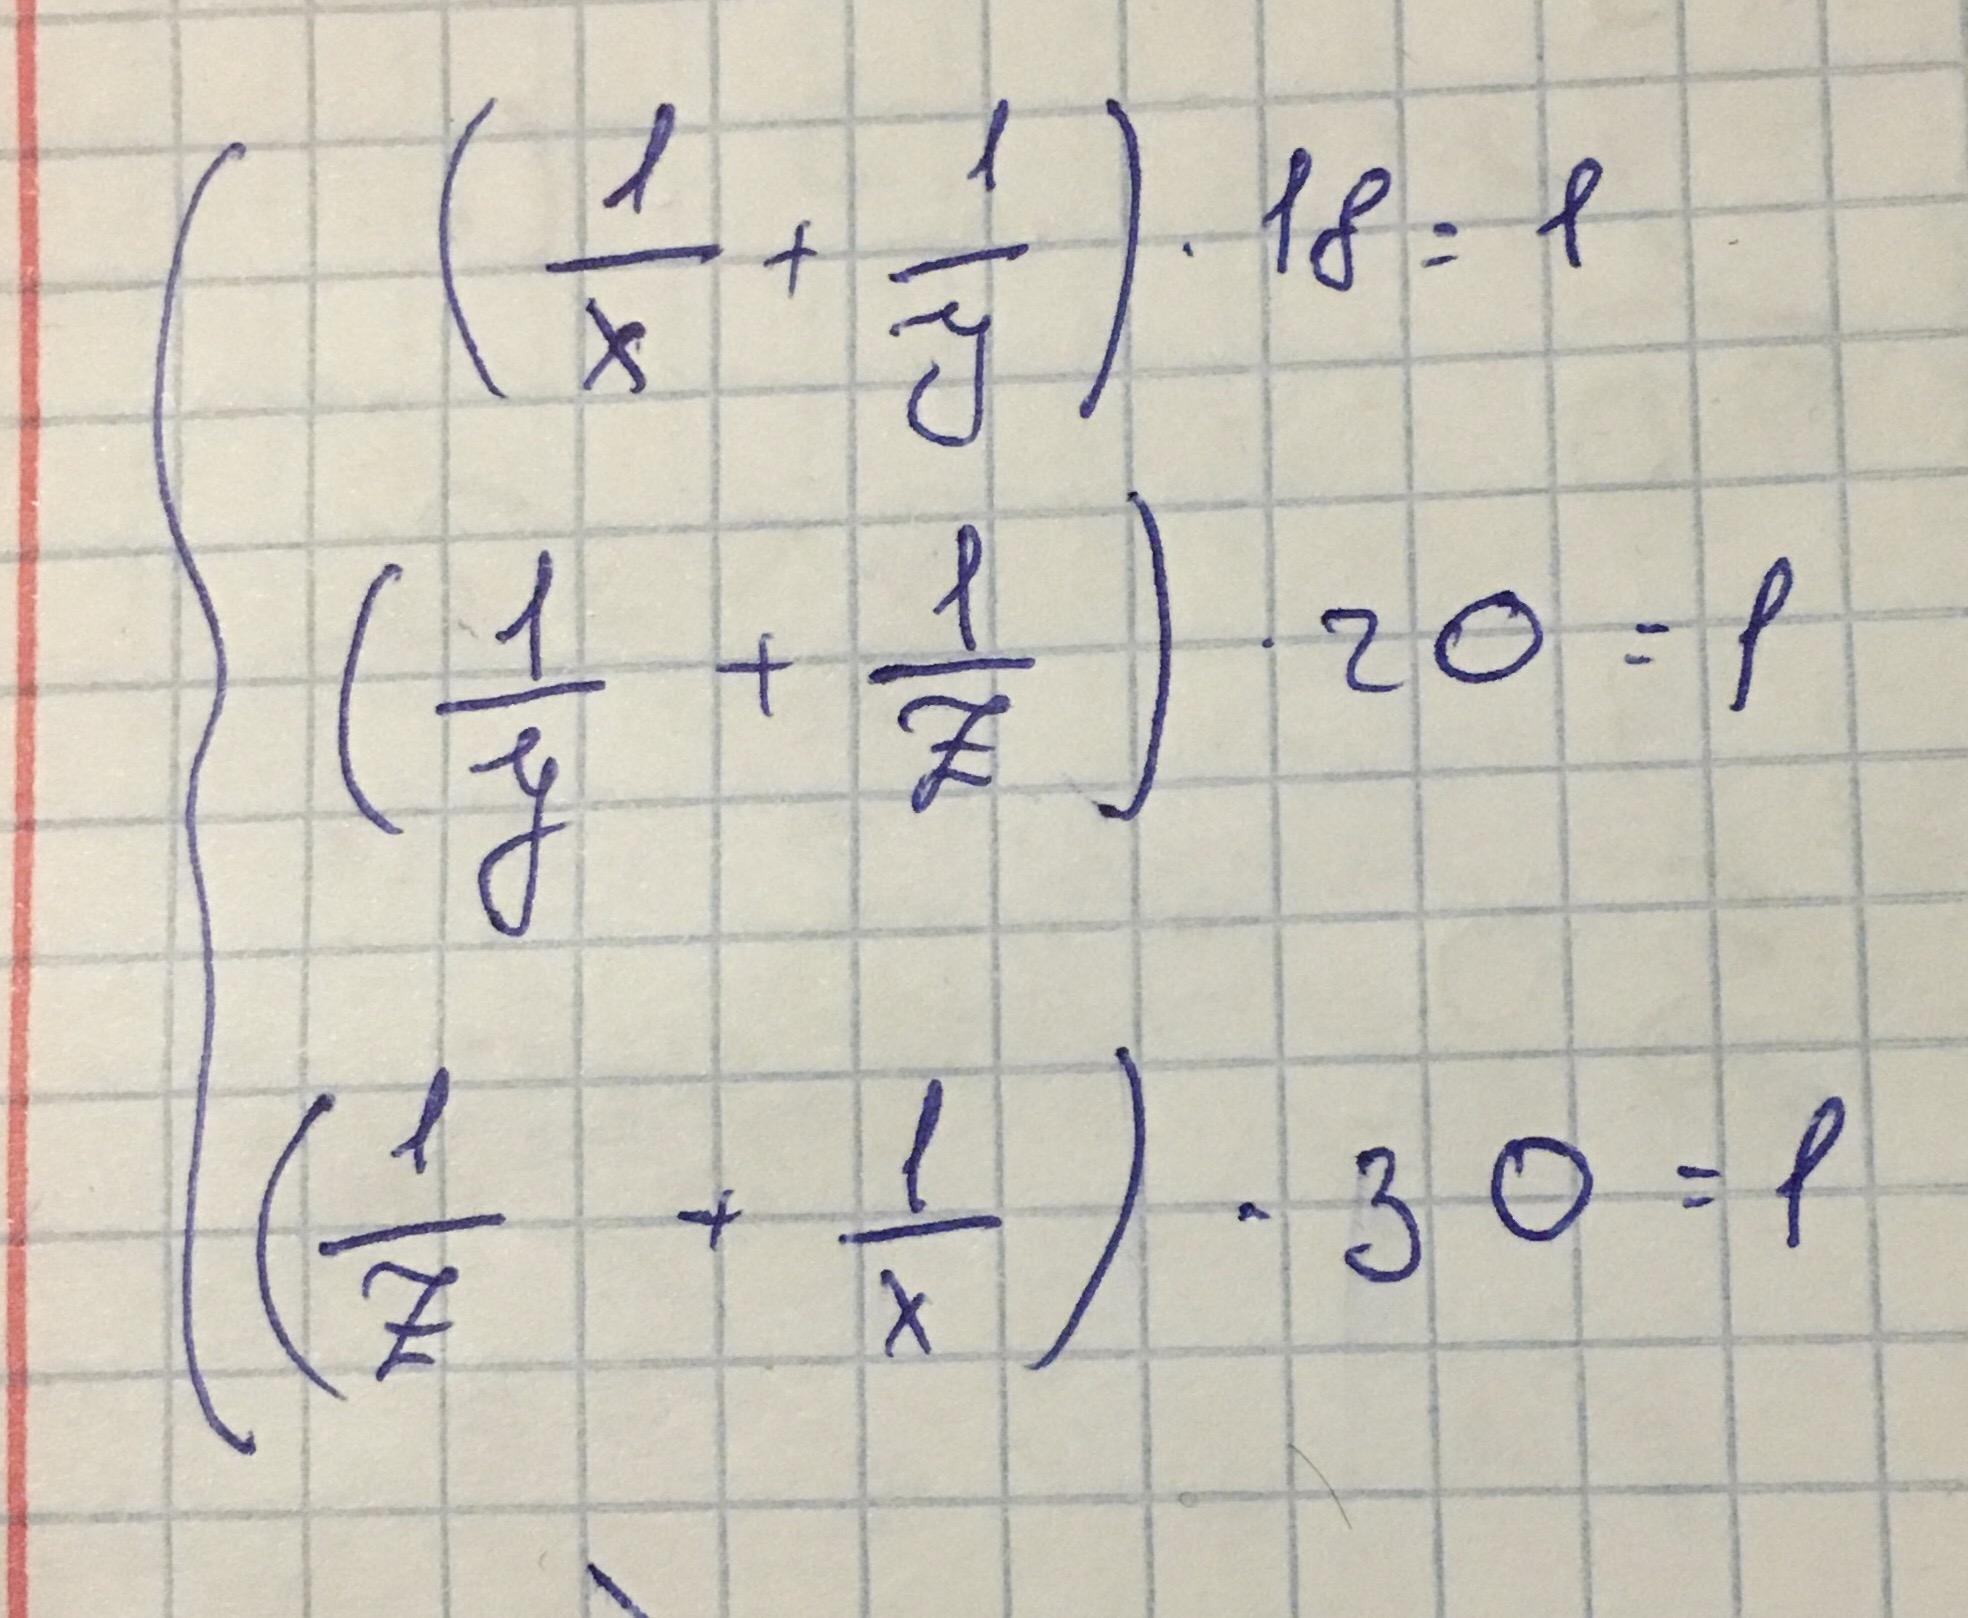 (1/x + 1/y) · 18 = 1
(1/y + 1/z) · 20 = 1
(1/z + 1/x) · 30 = 1